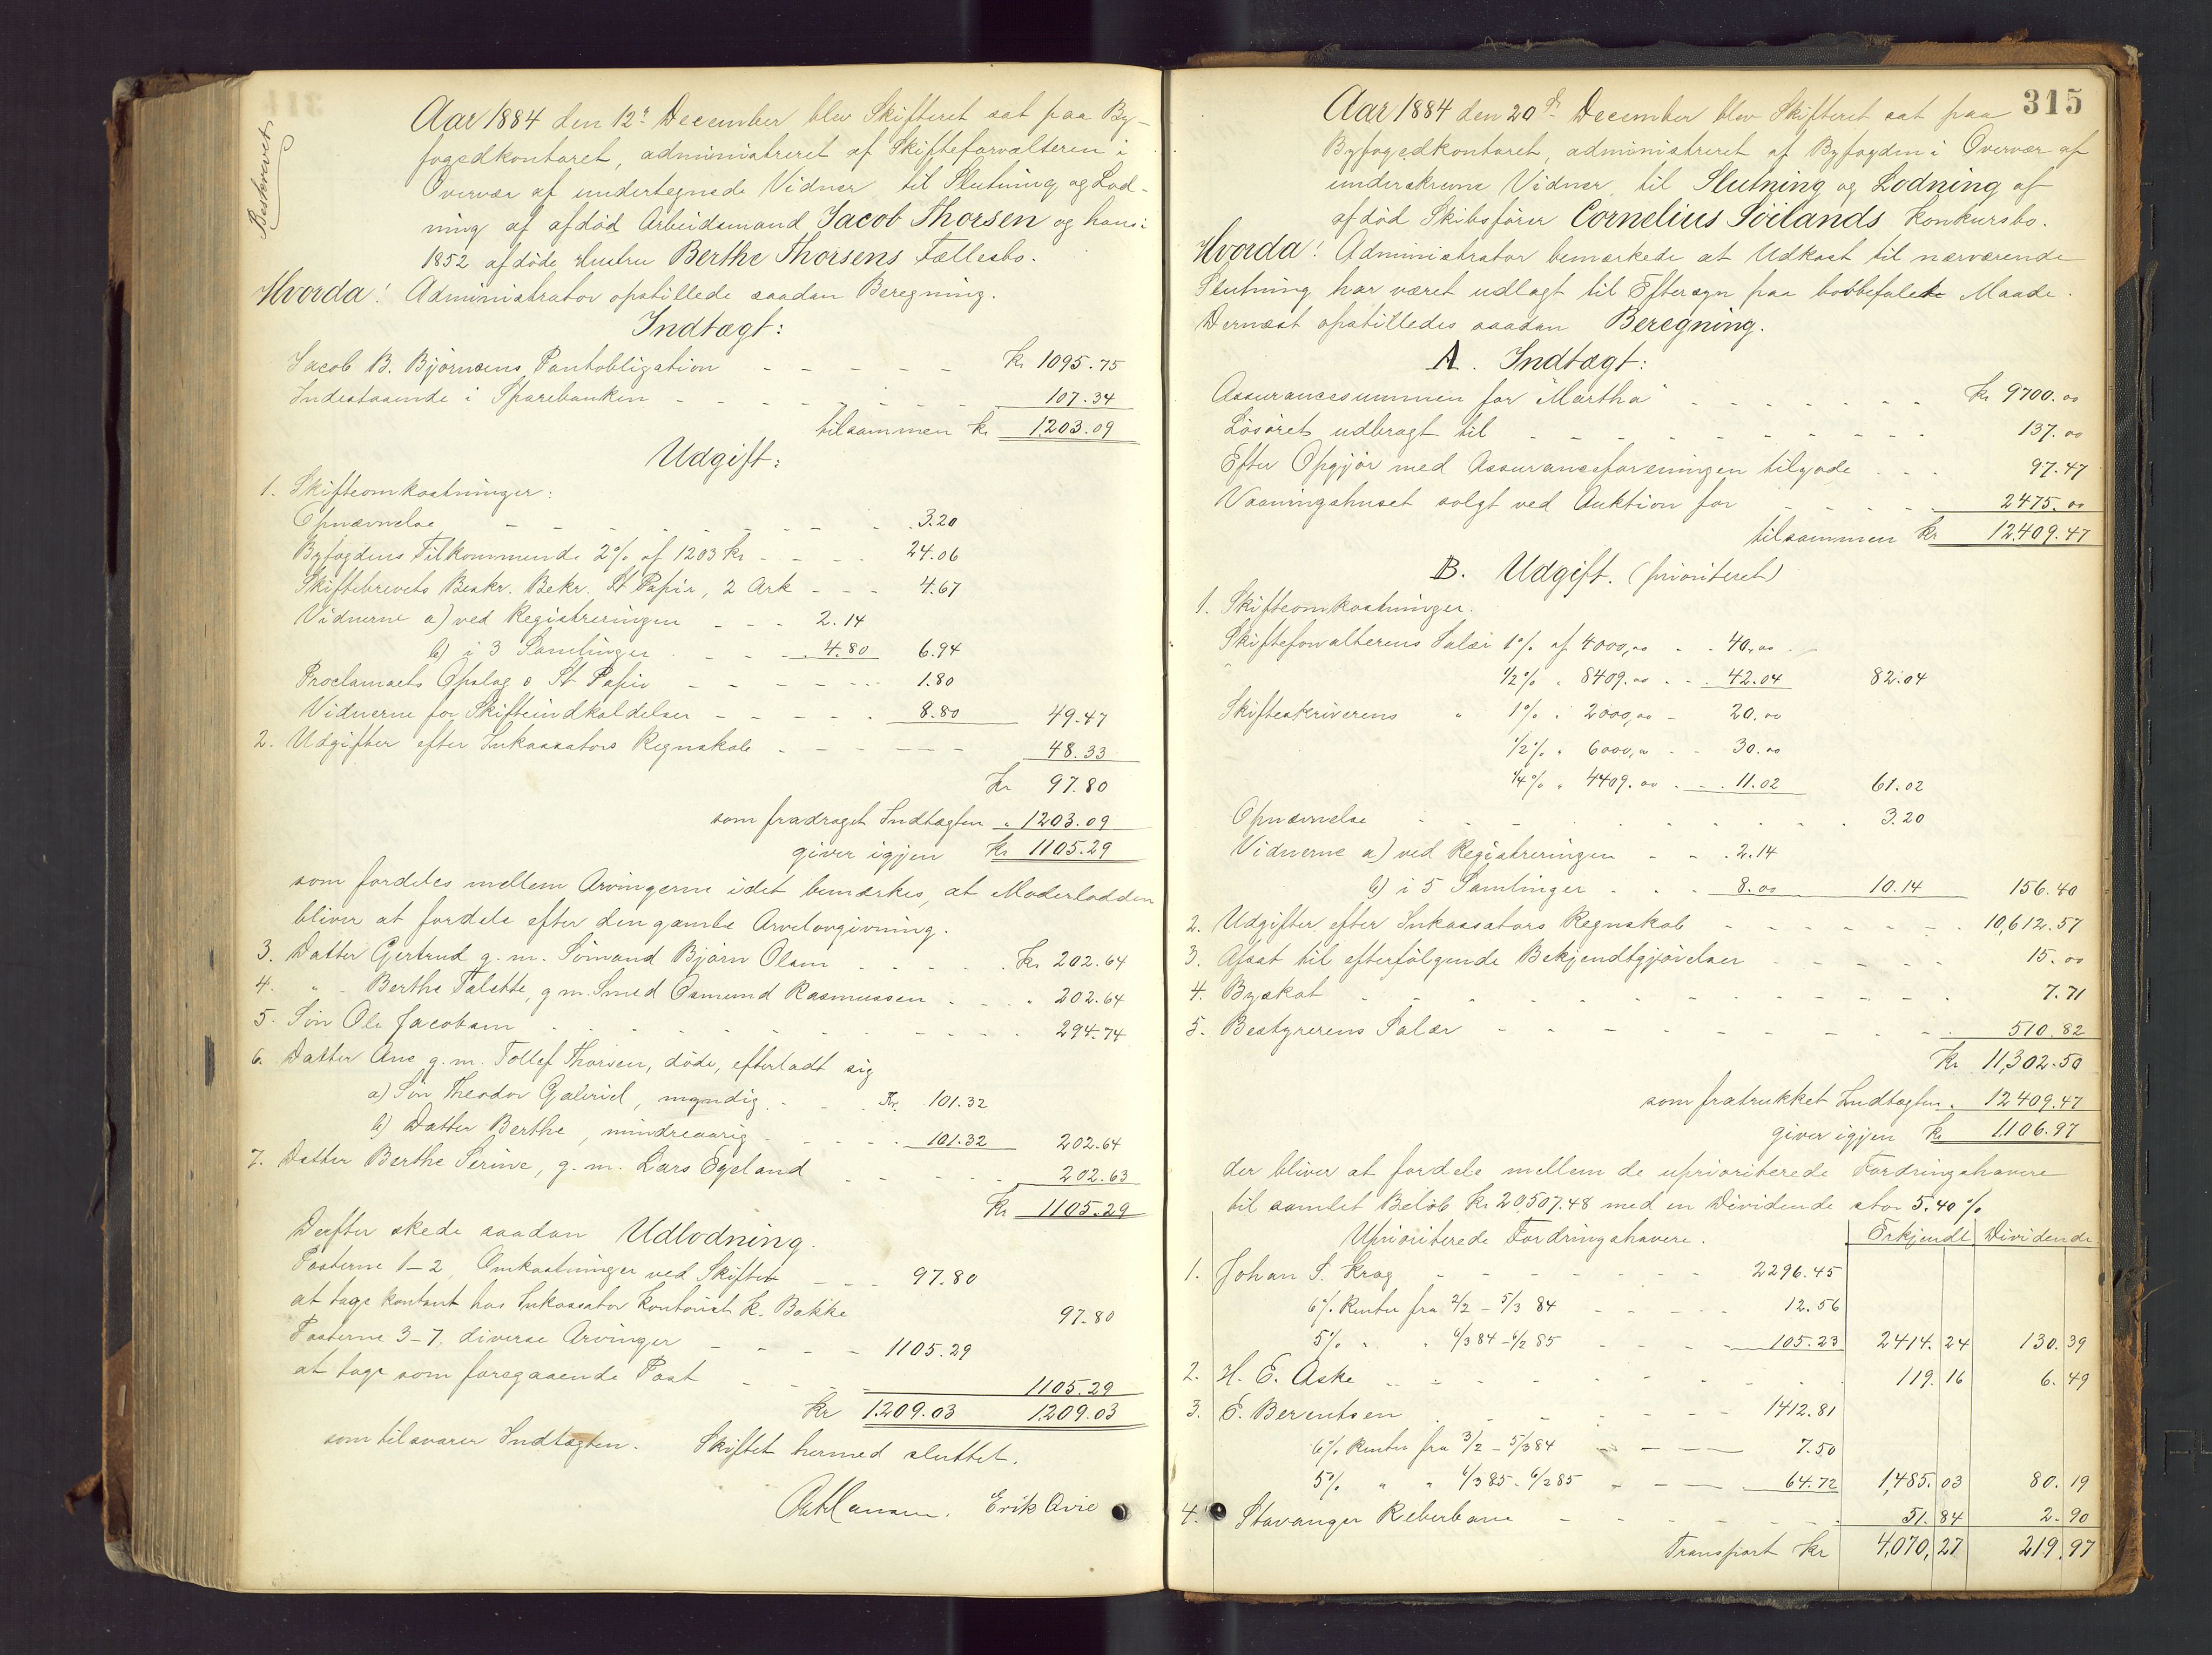 Beskrevet
Aar 1884 den 12' December blev Skifteret sat paa By-
fogedkontoret, administreret af Skifteforvalteren i
Overvær af undertegnede Vidner til Slutning og Lod-
ning af afdød Arbeidsmand Jacob Thorsen og hans i
1852 afdøde Hustru Berthe Thorsens Fællesbo.
Hvorda! Administrator opstillede saadan Beregning.
Indtægt:
Jacob B. Bjørnsens Pantobligation - - - - - Kr 1095.75
Indestaaende i Sparebanken - - - - - - 107.34
tilsammen Kr 1203.09
Udgift:
1. Skifteomkostninger:
Opnævnelse - - - - - - - 3.20
Byfogdens Tilkommende 2% af 1203 Kr - - - 24.06
Skiftebrevets Beskr. Bekr. St Papir, 2 Ark - - - 4.67
Vidnerne a) ved Registreringen - - - 2.14
b) i 3 Samlinger - - - 4.80 6.94
Proclamaets Opslag o St Papir - - - - - 1.80
Vidnerne for Skifteindkaldelser - - - - - 8.80 49.47
2. Udgifter efter Inkassators Regnskab - - - - - 48.33
Kr 97.80
som fradraget Indtægten " 1203.09
giver igjen Kr 1105.29
som fordeles mellem Arvingerne idet bemærkes, at Moderlodden
bliver at fordele efter den gamle Arvelovgivning.
3. Datter Gertrud g. m. Sømand Bjørn Olsen - - - - Kr 202.64
4. " Berthe Talette, g m. Smed Osmund Rasmussen - - - " 202.64
5. Søn Ole Jacobsen - - - - - - - - 294.74
6. Datter Ane g. m. Tollef Thorsen, døde, efterladt sig
a) Søn Theodor Gabriel, myndig - - - Kr. 101.32
b) Datter Berthe, mindreaarig - - - - 101.32 202.64
7. Datter Berthe Serine, g. m. Lars Egeland - - - - - 202.63
Kr 1105.29
Derefter skede saadan Udlodning.
Posterne 1-2, Omkostninger ved Skiftet - - - 97.80
at tage kontant hos Inkassator Kontorist K. Bakke 97.80
Posterne 3-7, diverse Arvinger - - - - 1105.29
at tage som foregaaende Post - - - - 1105.29
Kr 1209.03 1209.03
som tilsvarer Indtægten. Skiftet hermed sluttet.
Erik Avie
315
Aar 1884 den 20de December blev Skifteret sat paa
Byfogedkontoret, administreret af Byfogden i Overvær af
underskrevne Vidner til Slutning og Lodning af
afdød Skibsfører Cornelius Söilands Konkursbo.
Hvorda! Administrator bemærkede at Udkast til nærværende
Slutning har været udlagt til Eftersyn paa lovbefalede Maade.
Dernæst opstilledes saadan Beregning.
A. Indtægt:
Assurancesummen for "Martha" - - - - - - - Kr 9700.00
Løsøret udbragt til - - - - - - - - 137.00
Efter Opgjør med Assuranceforeningen tilgode - - - 97.47
Vaaningshuset solgt ved Auktion for - - - - - 2475.00
tilsammen Kr 12409.47
B. Udgift. (prioriteret)
1. Skifteomkostninger.
Skifteforvalterens Salær 1% af 4000,00 - - 40.00
½% " 8409.00 - - 42.04 82.04
Skifteskriverens " 1% " 2000,00 - 20.00
½% " 6000,00 - - 30.00
¼% " 4409.00 - - 11.02 61.02
Opnævnelse - - - - - - - - 3.20
Vidnerne a) ved Registreringen - - - 2.14
b) i 5 Samlinger - - - 8.00 10.14 156.40
2. Udgifter efter Inkassators Regnskab - - - - - - - 10,612.57
3. Afsat til efterfølgende Bekjendtgjørelser - - - - - 15.00
4. Byskat - - - - - - - - - - - 7.71
5. Bestyrerens Salær - - - - - - - - - 510.82
Kr 11,302.50
som fratrukket Indtægten " 12409.47
giver igjen Kr 1106.97
der bliver at fordele mellem de uprioriterede Fordringshavere
til samlet Beløb Kr 20,507.48 med en Dividende stor 5.40%
Uprioriterede Fordringshavere. Erkjendt Dividende
1. Johan S. Krag - - - - - - - 2296.45
6% Renter fra 2/2 - 5/3 84 - - - - 12.56
5% " " 6/3 84 - 6/2 85 - - - - 105.23 2414.24 130.39
2. H. E. Aske - - - - - - - - - 119.16 6.49
3. E. Berentsen - - - - - - 1412.81
6% Renter fra 3/2 - 5/3 84 - - - - 7.50
5% " " 6/3 85 - 6/2 85 - - - - 64.72 1,485.03 80.19
4. Stavanger Reberbane - - - - - - - 51.84 2.90
Transport Kr 4,070,27 219.97